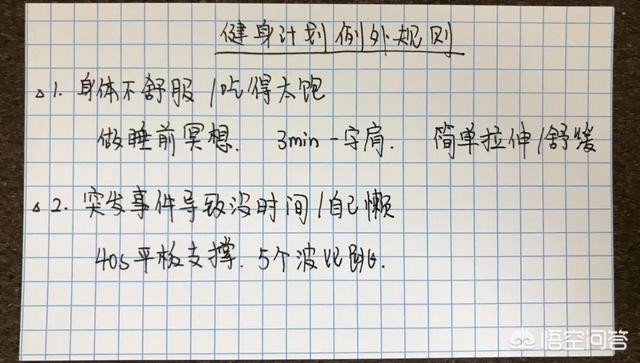 健身计划例外规则
△1. 身体不舒服/吃得太饱
做睡前冥想. 3min一字肩. 简单拉伸/舒缓
△2. 突发事件导致没时间/自己懒
40s平板支撑. 5个波比跳.
悟空问答